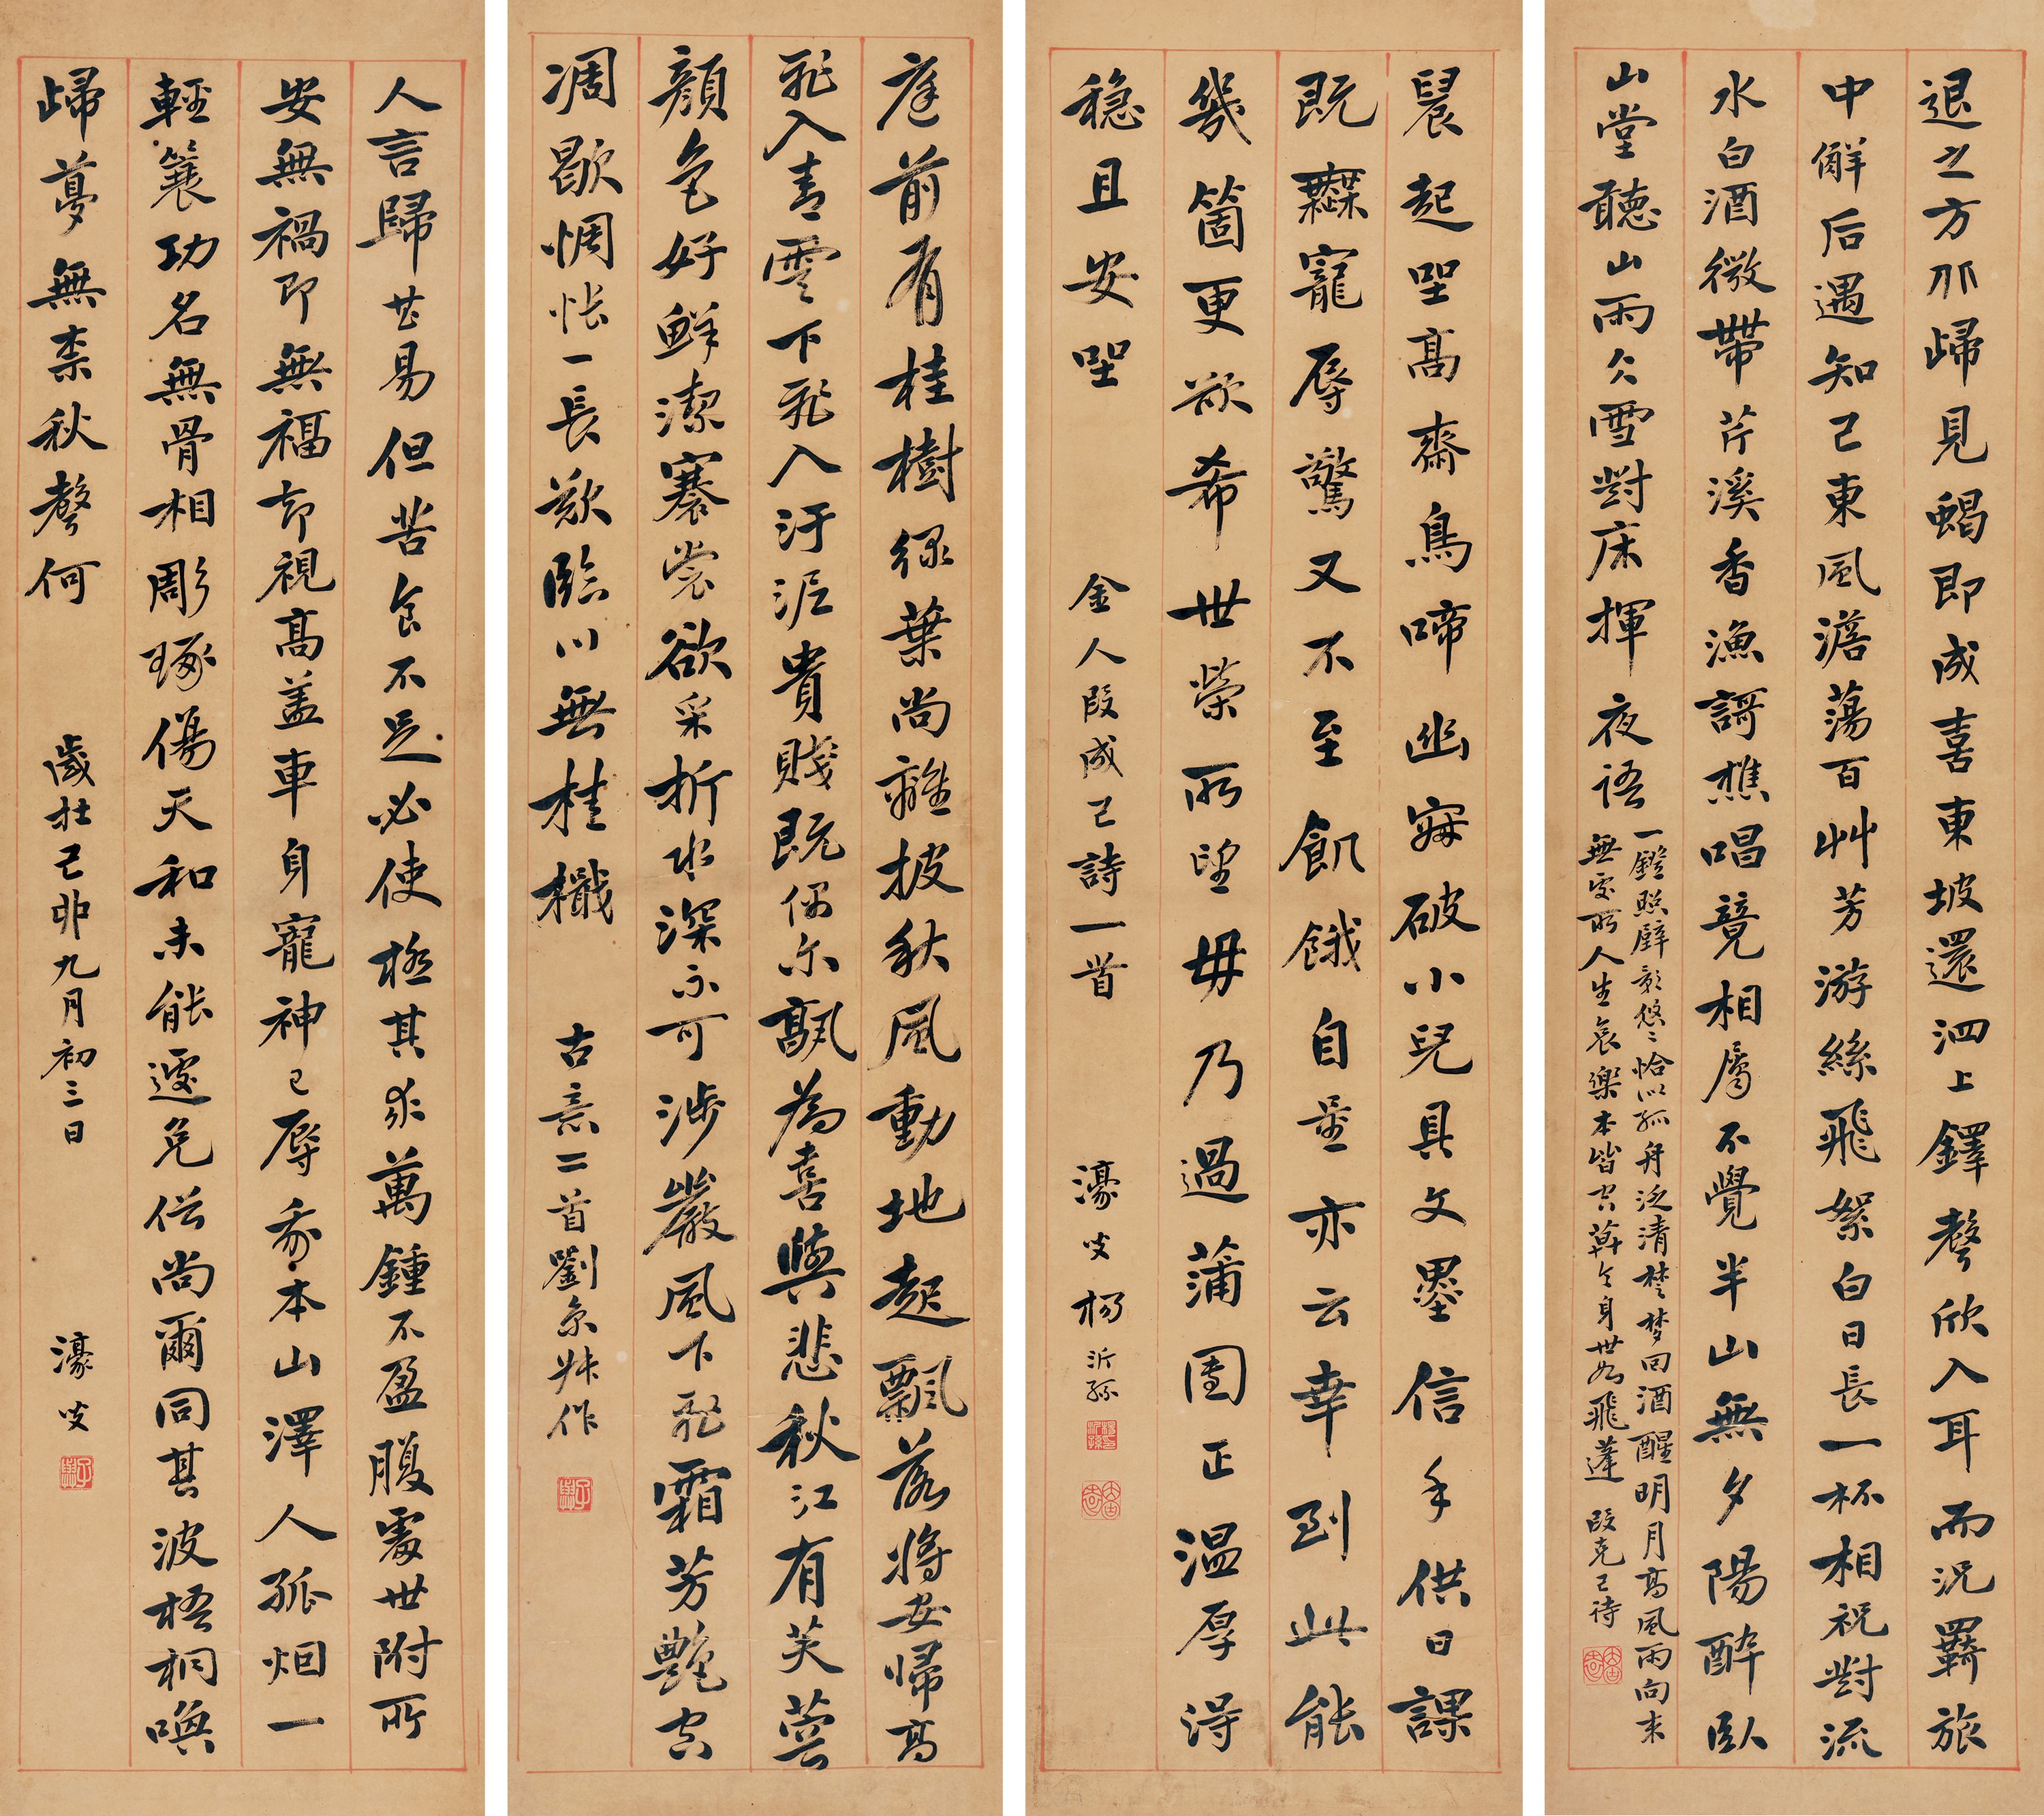 退之方邪歸見蝎即成喜東坡還泗上鐸聲欣入耳而況羇旅
中邂后遇知己東風澹蕩百艸芳游絲飛絮白日長一杯相祝對流
水白酒微帶芹溪香漁謌樵唱竟相屬不覺半山無夕陽醉臥
山堂聽山雨公雪對床揮夜語
一鐙照壁影悠〻恰似孤舟泛清楚夢回酒醒明月高風雨向来
無處所人生哀樂本皆空莫令身世如飛蓬 段克己詩
晨起坐高齋鳥啼幽寐破小兒具文墨信手供日課
既辭寵辱驚又不至飢餓自量亦云幸到此能
幾箇更欲希世榮所望毋乃過蒲團正温厚得
穏且安坐
金人段成己詩一首
濠叟楊沂孫
庭前有桂樹綠葉尚離披秋風動地起飄落將安歸高
飛入青雲下飛入汙泥貴賤既偶尔飄為喜與悲秋江有芙蓉
顏色好鮮潔褰裳欲采折水深不可涉嚴風下飛霜芳艷空
凋歇惆悵一長歎臨川無桂檝
古意二首劉京叔作
人言歸甚易但苦食不足必使極其求萬鍾不盈腹處世附所
安無禍即無福却視高盖車身寵神已辱余本山澤人孤烟一
輕簑功名無骨相彫琢傷天和未能遽免俗尚爾同其波梧桐喚
歸夢無柰秋聲何
歲在己卯九月初三日
濠叟